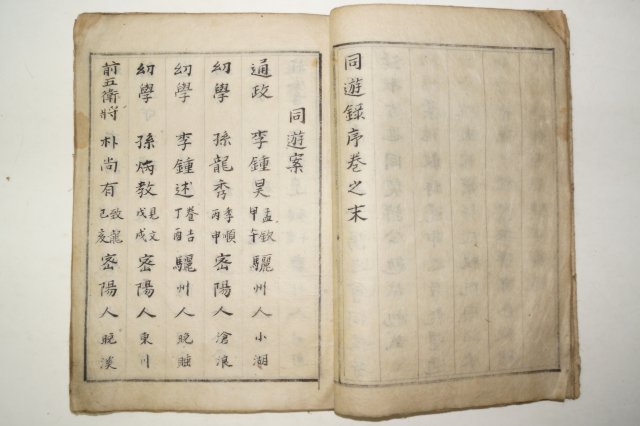 同遊錄序卷之末
同遊案
通政 李鍾昊 孟欽 甲午 驪州人 小湖
幼學 孫龍秀 季順 丙申 密陽人 滄浪
幼學 李鍾述 養吉 丁酉 驪州人 晚睡
幼學 孫炳教 見文 戊戌 密陽人 東川
前五衛將 朴尚有 致龍 己亥 密陽人 晚溪